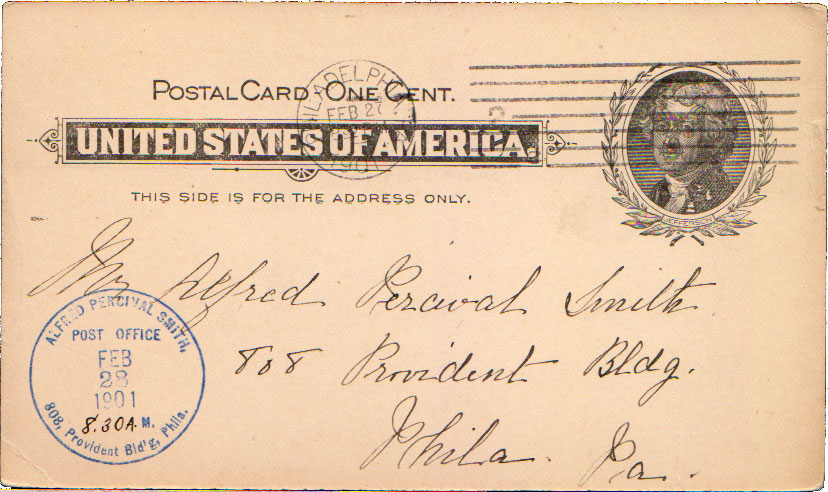 POSTAL CARD ONE CENT.
PHILADELPHIA
FEB 27
UNITED STATES OF AMERICA.
THIS SIDE IS FOR THE ADDRESS ONLY.
JEFFERSON
Mr Alfred Percival Smith
808 Provident Bldg.
Phila. Pa.
ALFRED PERCIVAL SMITH,
POST OFFICE
FEB
28
1901
8.30 A.M.
808, Provident Bld'g, Phila.